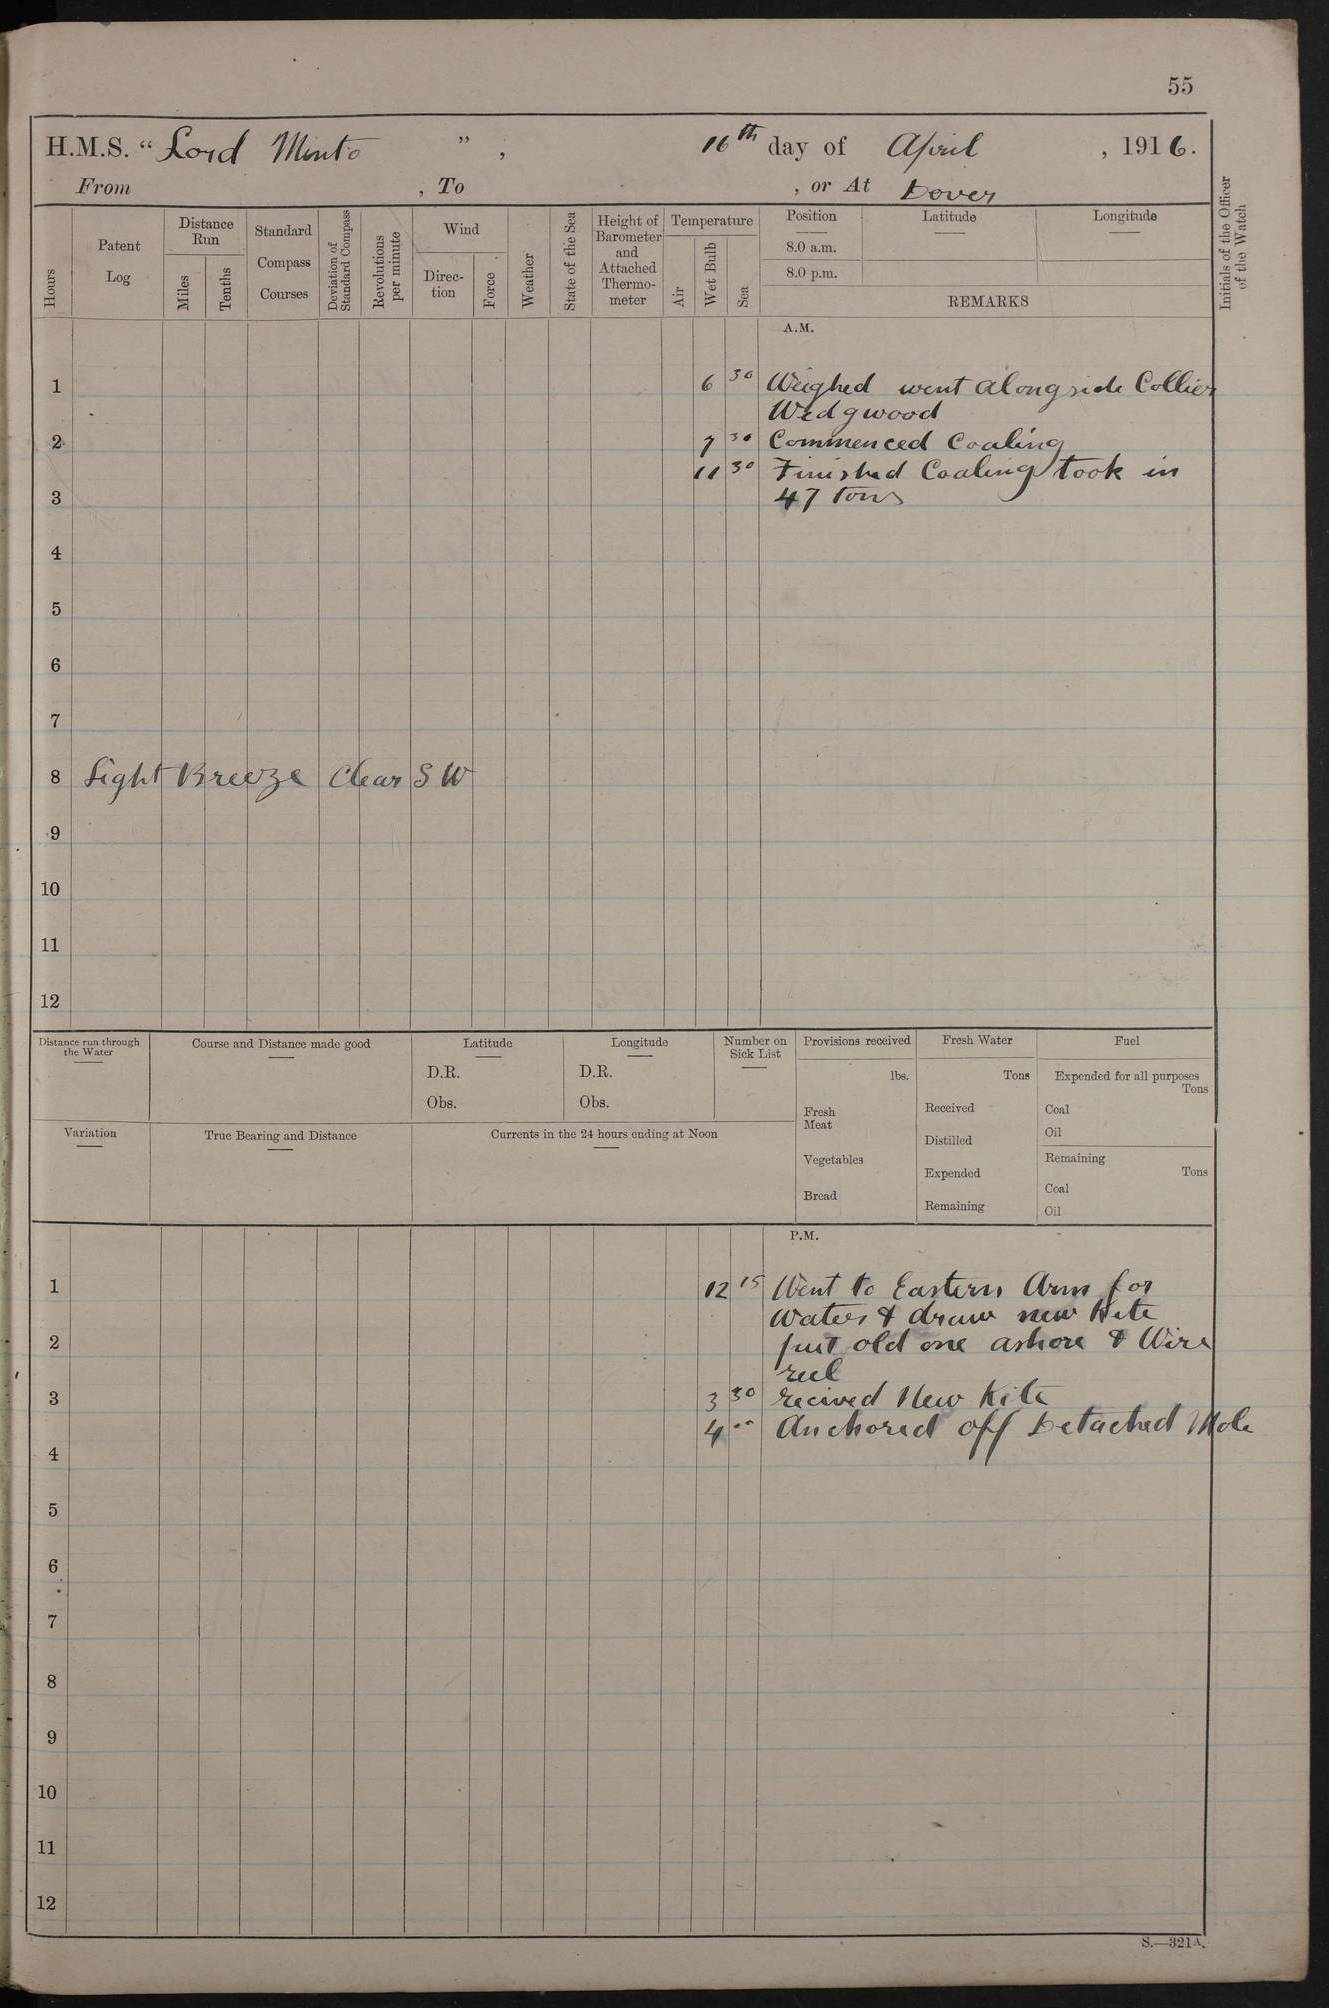 55
H.M.S. "Lord Minto", 16th day of April, 1916.
From , To , or At Dover
Hours
Patent Log
Distance Run
Miles
Tenths
Standard Compass Courses
Deviation of Standard Compass
Revolutions per minute
Wind
Direction
Force
Weather
State of the Sea
Height of Barometer and Attached Thermometer
Temperature
Air
Wet Bulb
Sea
Position
8.0 a.m.
8.0 p.m.
Latitude
Longitude
REMARKS
Initials of the Officer of the Watch
A.M.
1 6 30 Weighed went alongside Collier
Wedgwood
2 7 30 Commenced Coaling
11 30 Finished Coaling took in
3 47 tons
4
5
6
7
8 Light Breeze Clear S W
9
10
11
12
Distance run through the Water
Course and Distance made good
Latitude
D.R.
Obs.
Longitude
D.R.
Obs.
Number on Sick List
Provisions received
lbs.
Fresh Meat
Vegetables
Bread
Fresh Water
Tons
Received
Distilled
Expended
Remaining
Fuel
Expended for all purposes
Tons
Coal
Oil
Remaining
Tons
Coal
Oil
Variation
True Bearing and Distance
Currents in the 24 hours ending at Noon
P.M.
1 12 15 Went to Eastern Arm for
Water & draw new Kite
2 put old one ashore & Wire
reel
3 3 30 recived New Kite
4 " Anchored off Detached Mole
4
5
6
7
8
9
10
11
12
S.—321A.